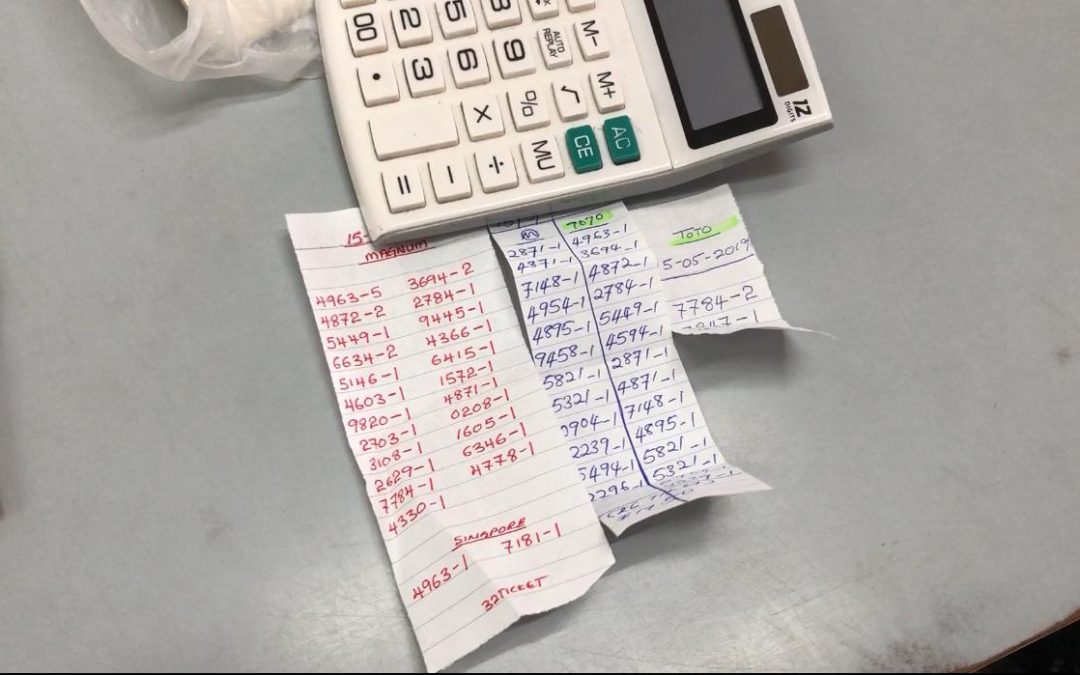 00 2 5 8
. 3 6 9 AUTO REPLAY M-
X % √ M+
= - ÷ MU CE AC
12 DIGITS
15-
MAGNUM
4963-5 3694-2
4872-2 2784-1
5449-1 9445-1
6634-2 4366-1
5146-1 6415-1
4603-1 1572-1
9820-1 4871-1
2703-1 0208-1
3108-1 1605-1
2629-1 6346-1
7784-1 4778-1
4330-1
SINGAPORE
4963-1 7181-1
32TICKET
M
2871-1
4871-1
7148-1
4954-1
4895-1
9458-1
5821-1
5321-1
0904-1
2239-1
5494-1
2296-1
TOTO
4963-1
3694-1
4872-1
2784-1
5449-1
4594-1
2871-1
4871-1
7148-1
4895-1
5821-1
5321-1
TOTO
5-05-2019
7784-2